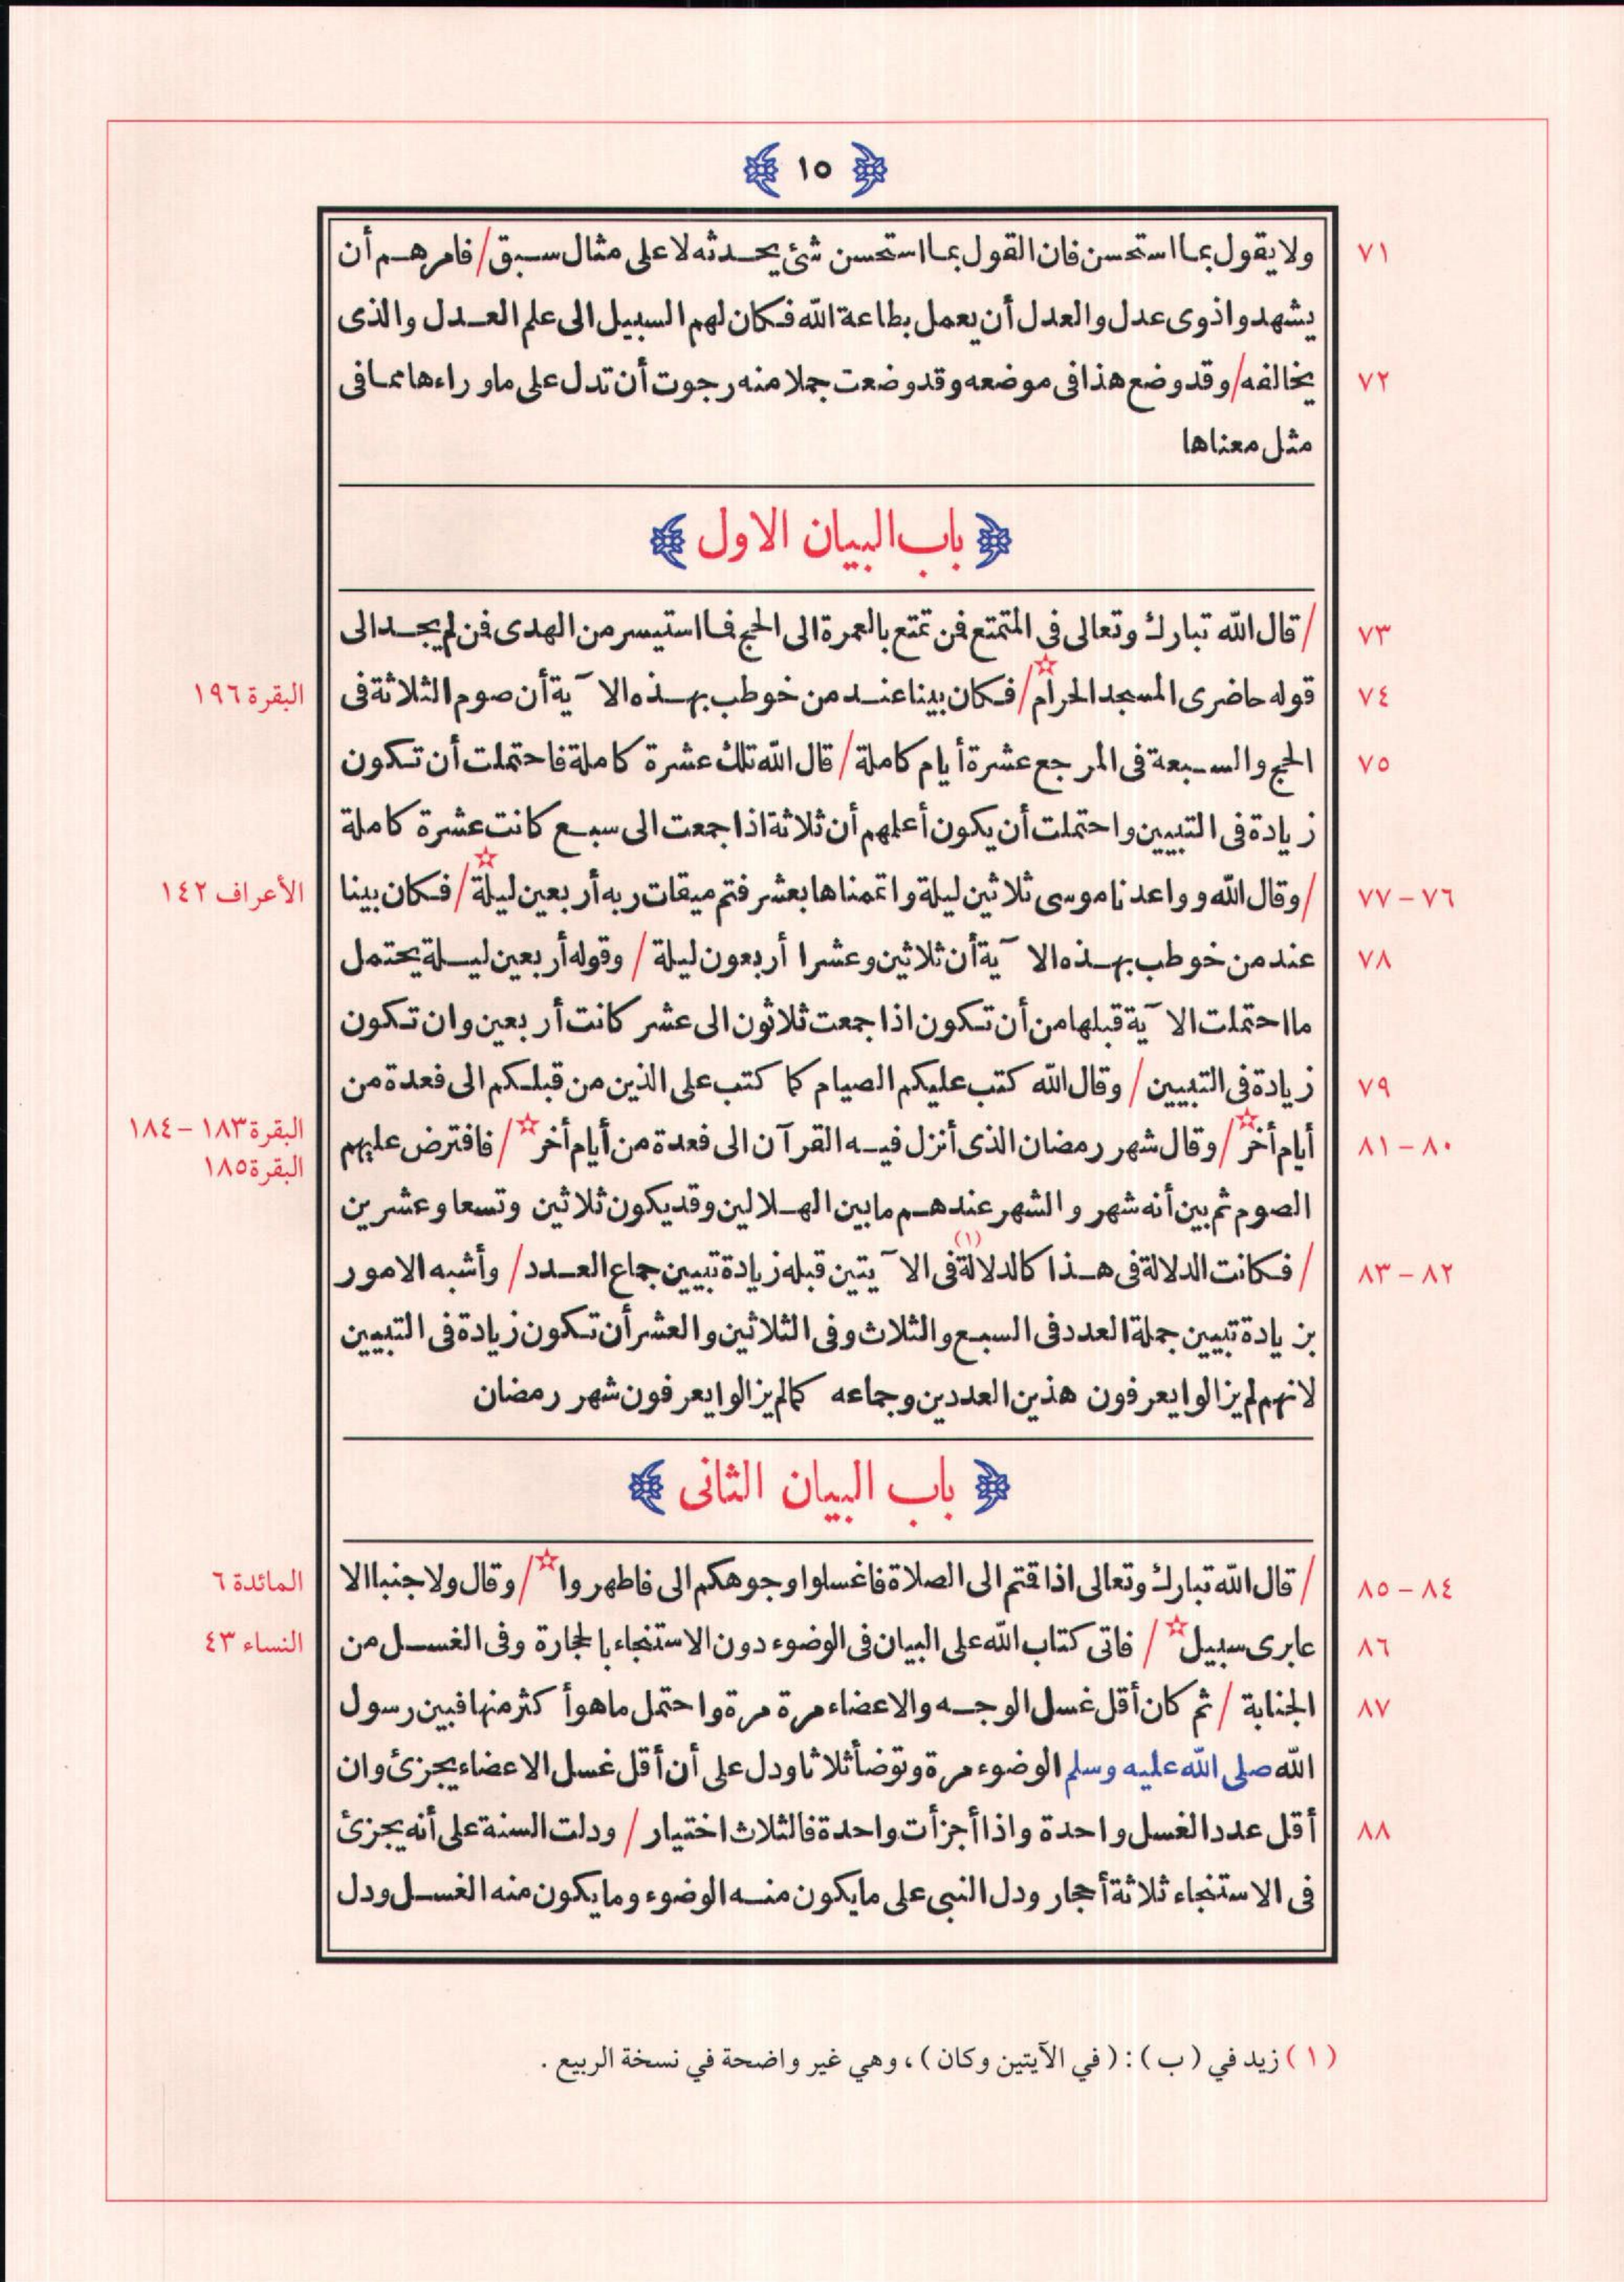 ١٥
٧١ ولا يقول بما استحسن فان القول بما استحسن شئ يحدثه لا على مثال سبق / فامرهم أن
يشهدوا ذوى عدل والعدل أن يعمل بطاعة الله فكان لهم السبيل الى علم العدل والذى
٧٢ يخالفه / وقد وضع هذا فى موضعه وقد وضعت جملا منه رجوت أن تدل على ماوراءها مما فى
مثل معناها
باب البيان الاول
٧٣ / قال الله تبارك وتعالى فى المتمتع فمن تمتع بالعمرة الى الحج فما استيسر من الهدى فمن لم يجد الى
٧٤ قوله حاضرى المسجد الحرام☆ / فكان بينا عند من خوطب بهذه الآية أن صوم الثلاثة فى البقرة ١٩٦
٧٥ الحج والسبعة فى المرجع عشرة أيام كاملة / قال الله تلك عشرة كاملة فاحتملت أن تكون
زيادة فى التبيين واحتملت أن يكون أعلمهم أن ثلاثة اذا جمعت الى سبع كانت عشرة كاملة
٧٦ – ٧٧ / وقال الله وواعدنا موسى ثلاثين ليلة واتممناها بعشر فتم ميقات ربه أربعين ليلة☆ / فكان بينا الأعراف ١٤٢
٧٨ عند من خوطب بهذه الآية أن ثلاثين وعشرا أربعون ليلة / وقوله أربعين ليلة يحتمل
ما احتملت الآية قبلها من أن تكون اذا جمعت ثلاثون الى عشر كانت أربعين وان تكون
٧٩ زيادة فى التبيين / وقال الله كتب عليكم الصيام كما كتب على الذين من قبلكم الى فعدة من
٨٠ – ٨١ أيام أخر☆ / وقال شهر رمضان الذى أنزل فيه القرآن الى فعدة من أيام أخر☆ / فافترض عليهم البقرة ١٨٣ – ١٨٤
البقرة ١٨٥
الصوم ثم بين أنه شهر والشهر عندهم مابين الهلالين وقد يكون ثلاثين وتسعا وعشرين
٨٢ – ٨٣ / فكانت الدلالة فى هذا كالدلالة(١) فى الآيتين قبله زيادة تبيين جماع العدد / وأشبه الامور
بزيادة تبيين جملة العدد فى السبع والثلاث وفى الثلاثين والعشر أن تكون زيادة فى التبيين
لانهم لم يزالوا يعرفون هذين العددين وجماعه كما لم يزالوا يعرفون شهر رمضان
باب البيان الثانى
٨٤ – ٨٥ / قال الله تبارك وتعالى اذا قمتم الى الصلاة فاغسلوا وجوهكم الى فاطهروا☆ / وقال ولا جنبا الا المائدة ٦
٨٦ عابرى سبيل☆ / فاتى كتاب الله على البيان فى الوضوء دون الاستنجاء بالحجارة وفى الغسل من النساء ٤٣
٨٧ الجنابة / ثم كان أقل غسل الوجه والاعضاء مرة مرة واحتمل ماهو أكثر منها فبين رسول
الله صلى الله عليه وسلم الوضوء مرة وتوضأ ثلاثا ودل على أن أقل غسل الاعضاء يجزئ وان
٨٨ أقل عدد الغسل واحدة واذا أجزأت واحدة فالثلاث اختيار / ودلت السنة على أنه يجزئ
فى الاستنجاء ثلاثة أحجار ودل النبى على مايكون منه الوضوء ومايكون منه الغسل ودل
( ١ ) زيد في ( ب ) : ( في الآيتين وكان ) ، وهي غير واضحة في نسخة الربيع .